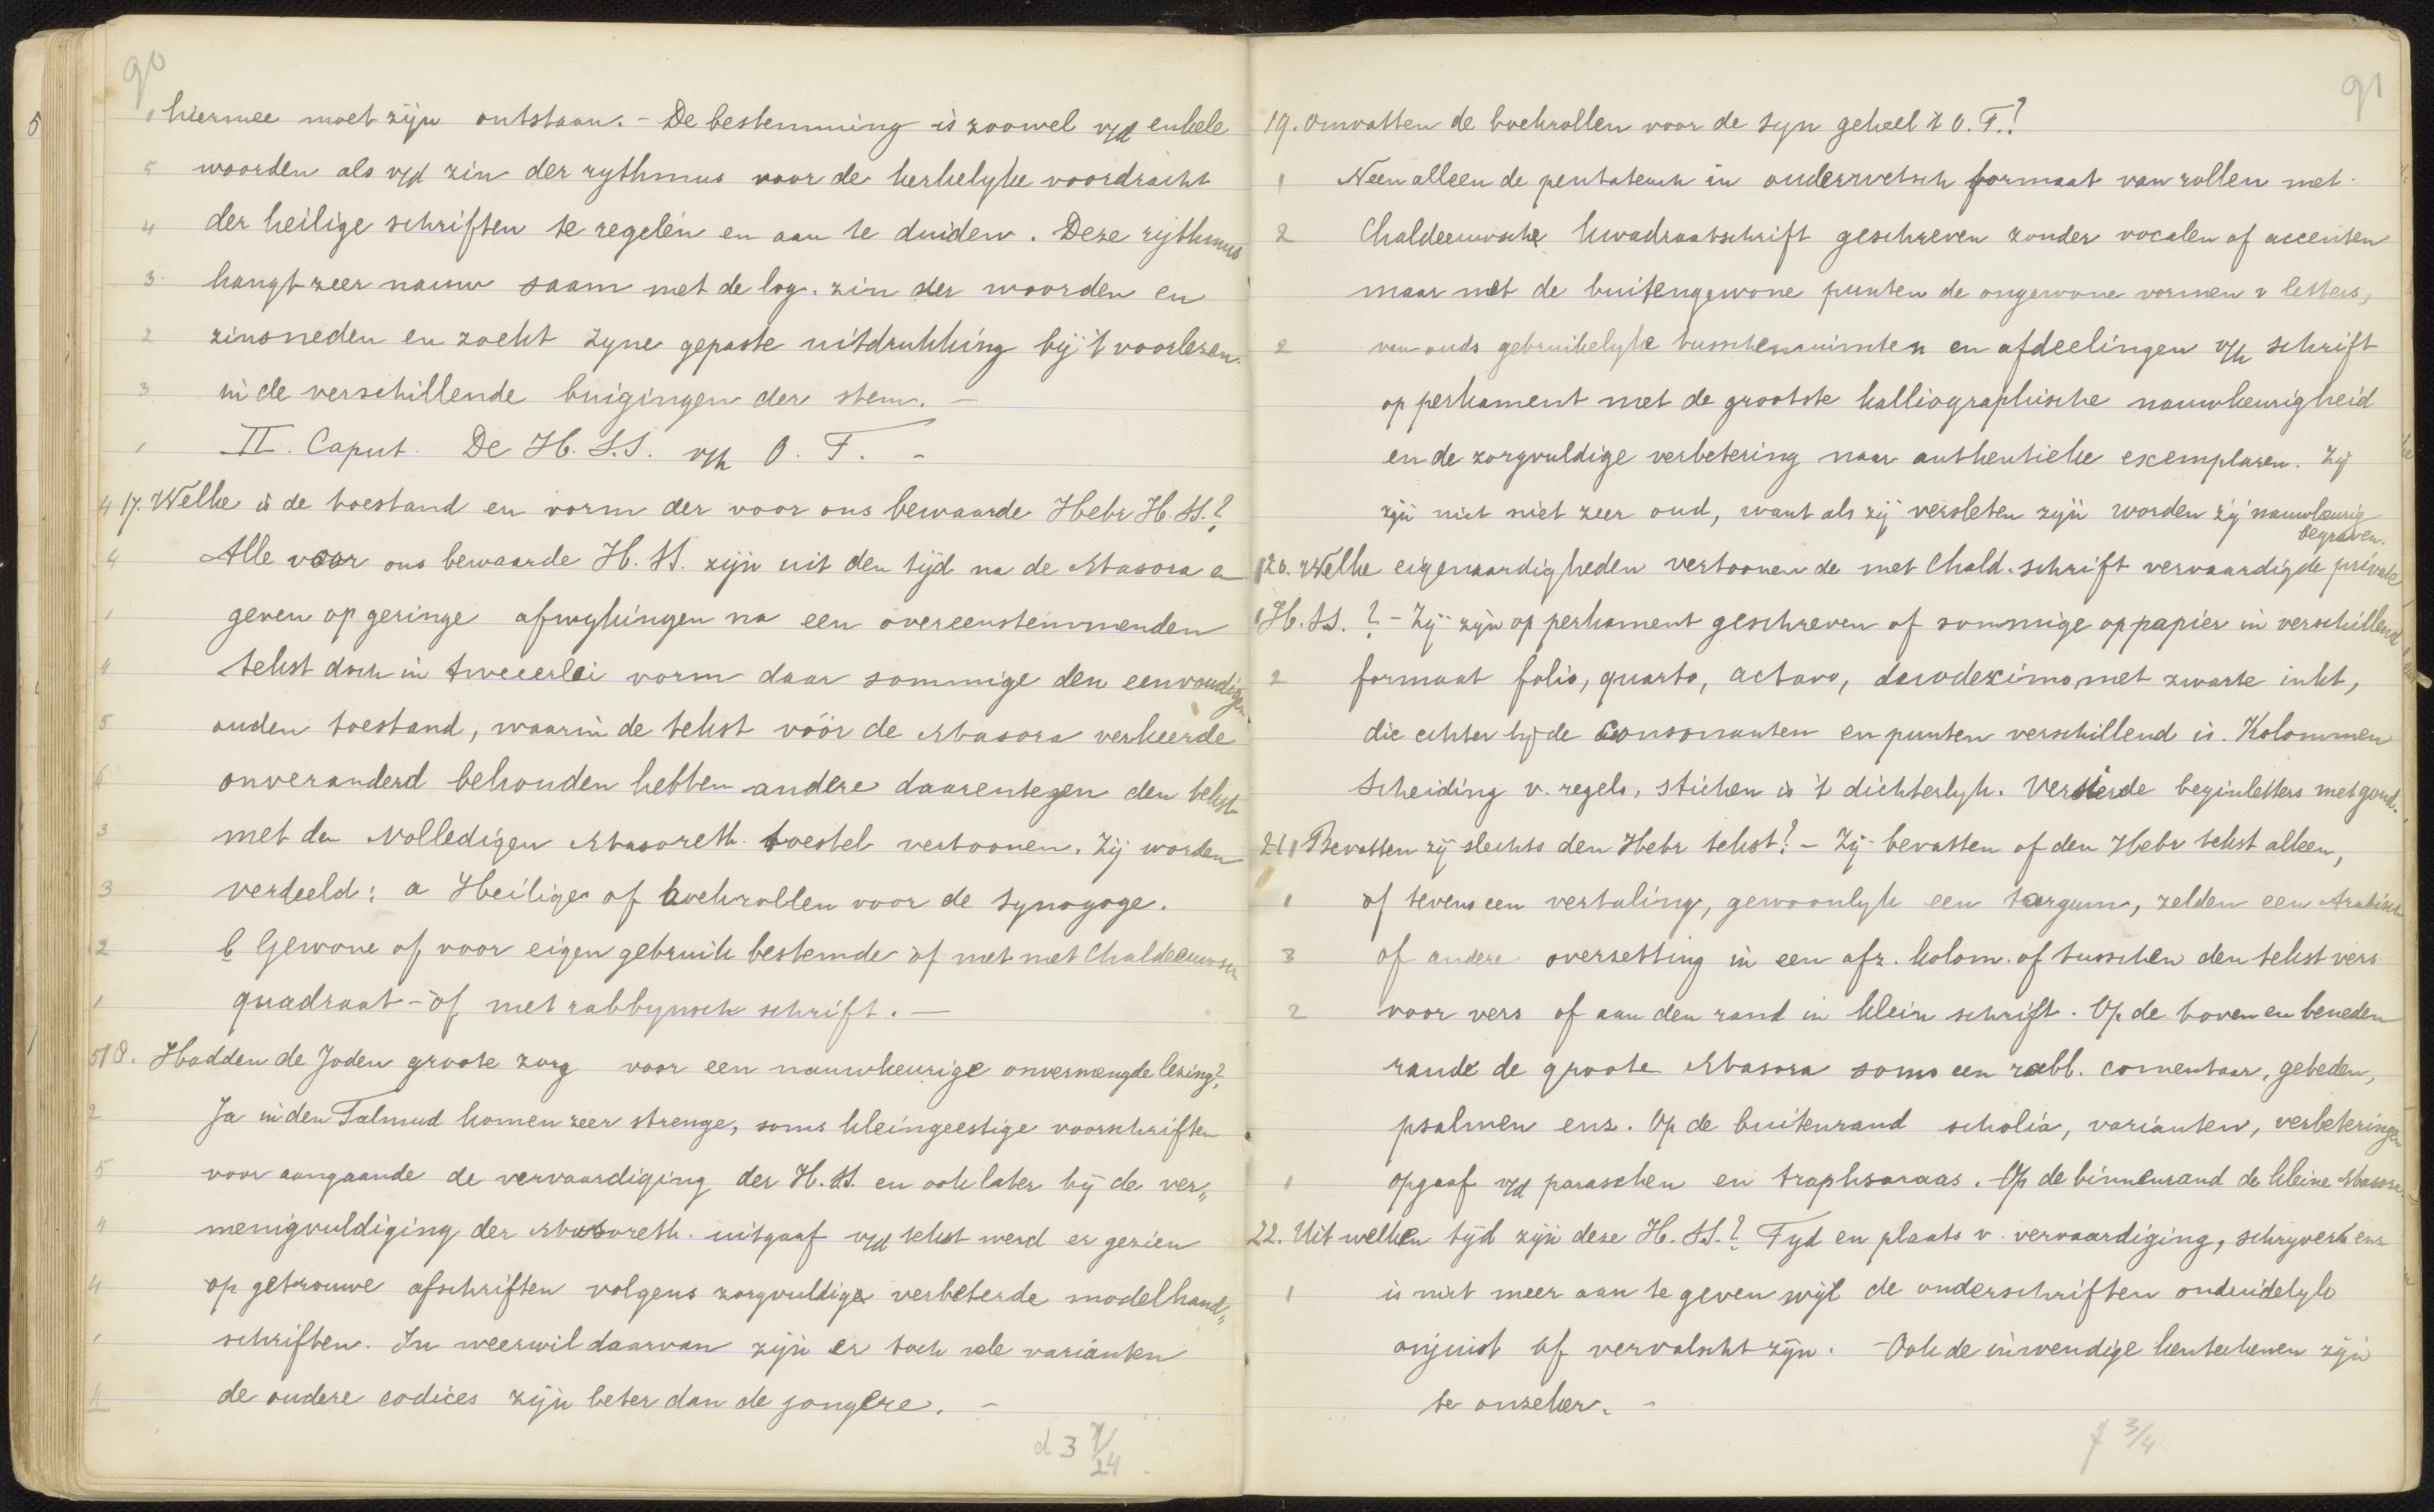 90
1 hiermee moet zijn ontstaan. - De bestemming is zoowel v/d enkele
5 woorden als v/d zin der rythmus voor de kerkelyke voordracht
4 der heilige schriften te regelen en aan te duiden. Deze rythmus
3 hangt zeer nauw saam met de log. zin der woorden en
2 zinsneden en zoekt zyne gepaste uitdrukking bij 't voorlezen
3 in de verschillende buigingen der stem. -
1 II. Caput. De H.S.S. v/h O.T. -
4 17. Welke is de toestand en vorm der voor ons bewaarde Hebr H.SS.?
4 Alle voor ons bewaarde H.SS. zijn uit den tijd na de Masora en
1 geven op geringe afwykingen na een overeenstemmenden
4 tekst doch in tweeerlei vorm daar sommige den eenvoudigen
5 ouden toestand, waarin de tekst vóór de Masora verkeerde
6 onveranderd behouden hebben andere daarentegen den tekst
3 met den volledigen Masoreth. toestel vertoonen. Zij worden
3 verdeeld: a Heilige of boekrollen voor de synagoge.
2 b Gewone of voor eigen gebruik bestemde òf met met Chaldeeuwsch
1 quadraat - òf met rabbynsch schrift. -
5 18. Hadden de Joden groote zorg voor een nauwkeurige onvermengde lezing?
2 Ja in den Talmud komen zeer strenge, soms kleingeestige voorschriften
5 voor aangaande de vervaardiging der H.SS. en ook later bij de ver„
4 menigvuldiging der Masoreth. uitgaaf v/d tekst werd er gezien
4 op getrouwe afschriften volgens zorgvuldige verbeterde modelhand„
1 schriften. In weerwil daarvan zijn er toch vele varianten
4 de oudere codices zijn beter dan de jongere. -
d 3 7/24
91
19. Omvatten de boekrollen voor de syn geheel 't O.T.?
1 Neen alleen de pentateuch in ouderwetsch formaat van rollen met
2 Chaldeeuwsche kwadraatschrift geschreven zonder vocalen of accenten
maar met de buitengewone punten de ongewone vormen v letters,
2 van ouds gebruikelyke tusschenruimten en afdeelingen v/h schrift
op perkament met de grootste kalliographische nauwkeurigheid
en de zorgvuldige verbetering naar authentieke exemplaren. Zij
zijn niet zeer oud, want als zij versleten zijn worden zij nauwkeurig
begraven.
1 20. Welke eigenaardigheden vertoonen de met Chald. schrift vervaardigde private
1 H.SS.? - Zij zijn op perkament geschreven of sommige op papier in verschillend
2 formaat folio, quarto, octavo, duodezimo, met zwarte inkt,
die echter bij de consonanten en punten verschillend is. Kolommen
scheiding v. regels, stichen is 't dichterlyk. Versierde beginletters met goud.
21. 1 Bevatten zij slechts den Hebr tekst? - Zij bevatten of den Hebr tekst alleen,
1 of tevens een vertaling, gewoonlyk een targum, zelden een Arabisch
3 of andere overzetting in een afz. kolom. of tusschen den tekst vers
2 voor vers of aan den rand in klein schrift. Op de boven en beneden
rande de groote Masora soms een rabb. comentaar, gebeden,
psalmen enz. Op de buitenrand scholia, varianten, verbeteringen
1 opgaaf v/d paraschen en traphsaraas. Op de binnenrand de kleine Masora.
22. Uit welken tijd zijn deze H.SS.? Tyd en plaats v. vervaardiging, schryvers enz
1 is niet meer aan te geven wijl de onderschriften onduidelyk
onjuist of vervalscht zijn. - Ook de inwendige kenteekenen zijn
te onzeker. -
f 3/4